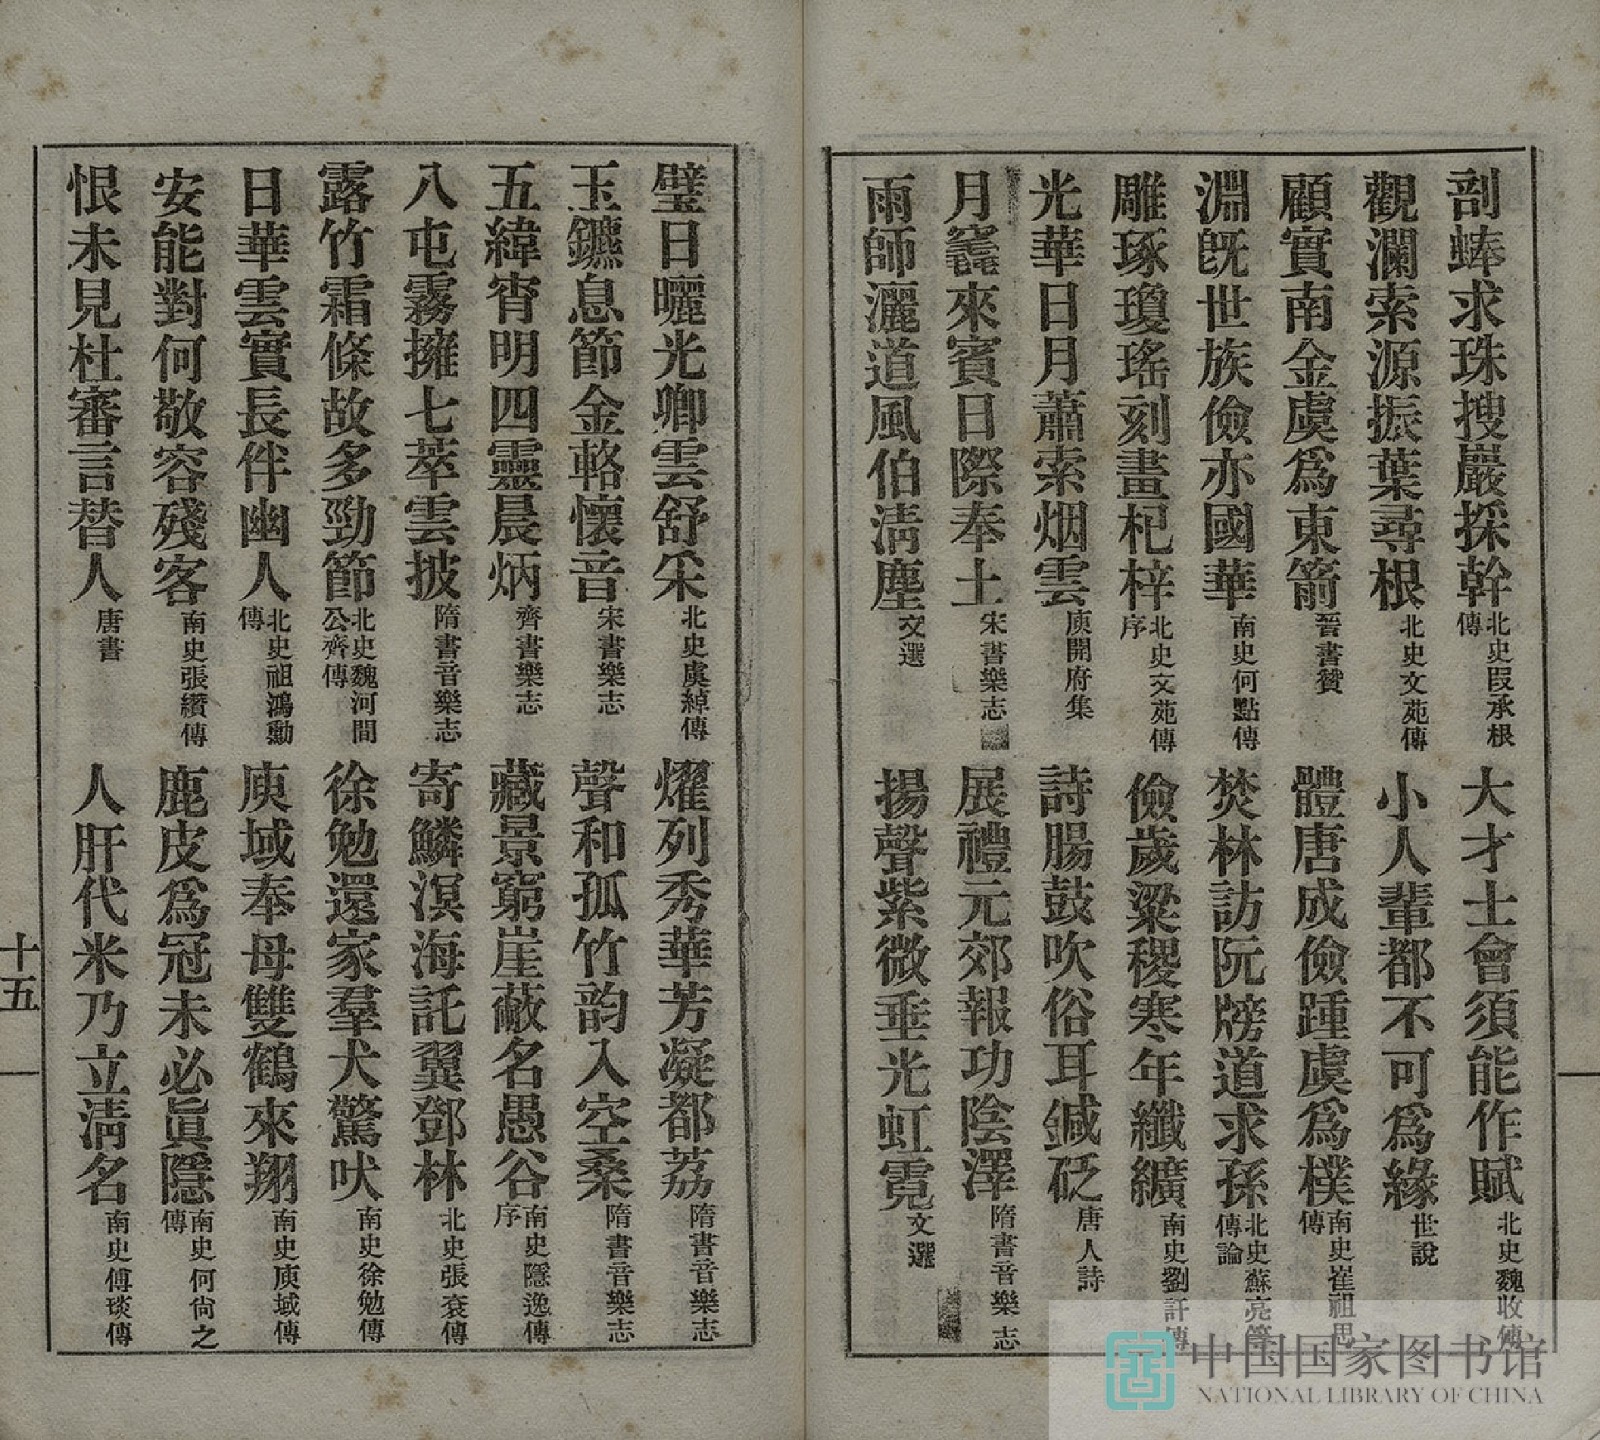 剖蜯求珠搜巖採幹北史段承根傳　大才士會須能作賦北史魏收傳
觀瀾索源振葉尋根北史文苑傳　小人輩都不可為緣世說
顧實南金虞為東箭晉書贊　體唐成儉踵虞為樸南史崔祖思傳
淵既世族儉亦國華南史何點傳　焚林訪阮牓道求孫北史蘇亮等傳論
雕琢瓊瑤刻畫杞梓北史文苑傳序　儉歲粱稷寒年纖纊南史劉訏傳
光華日月蕭索烟雲庾開府集　詩腸鼓吹俗耳鍼砭唐人詩
月竁來賓日際奉土宋書樂志　展禮元郊報功陰澤隋書音樂志
雨師灑道風伯清塵文選　揚聲紫微垂光虹霓文選
璧日曬光卿雲舒采北史虞綽傳　燿列秀華芳凝都荔隋書音樂志
玉鑣息節金輅懷音宋書樂志　聲和孤竹韵入空桑隋書音樂志
五緯宵明四靈晨炳齊書樂志　藏景窮崖蔽名愚谷南史隱逸傳序
八屯霧擁七萃雲披隋書音樂志　寄鱗溟海託翼鄧林北史張袞傳
露竹霜條故多勁節北史魏河間公齊傳　徐勉還家羣犬驚吠南史徐勉傳
日華雲實長伴幽人北史祖鴻勳傳　庾域奉母雙鶴來翔南史庾域傳
安能對何敬容殘客南史張纘傳　鹿皮為冠未必眞隱南史何尙之傳
恨未見杜審言替人唐書　人肝代米乃立清名南史傅琰傳
十五
中国国家图书馆
NATIONAL LIBRARY OF CHINA